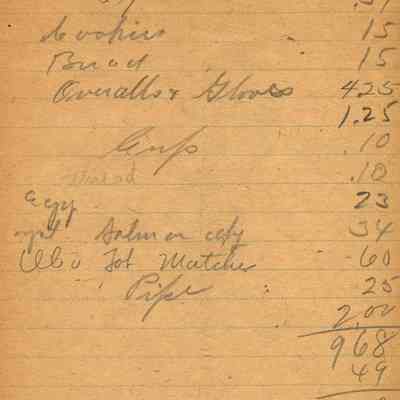 Cookies 15
Bread 15
Overalls & Gloves 4.25
1.25
Cups .10
Thread .10
Egg 23
Salmon 34
Tob Matches 60
Pipe 25
2.00
968
49